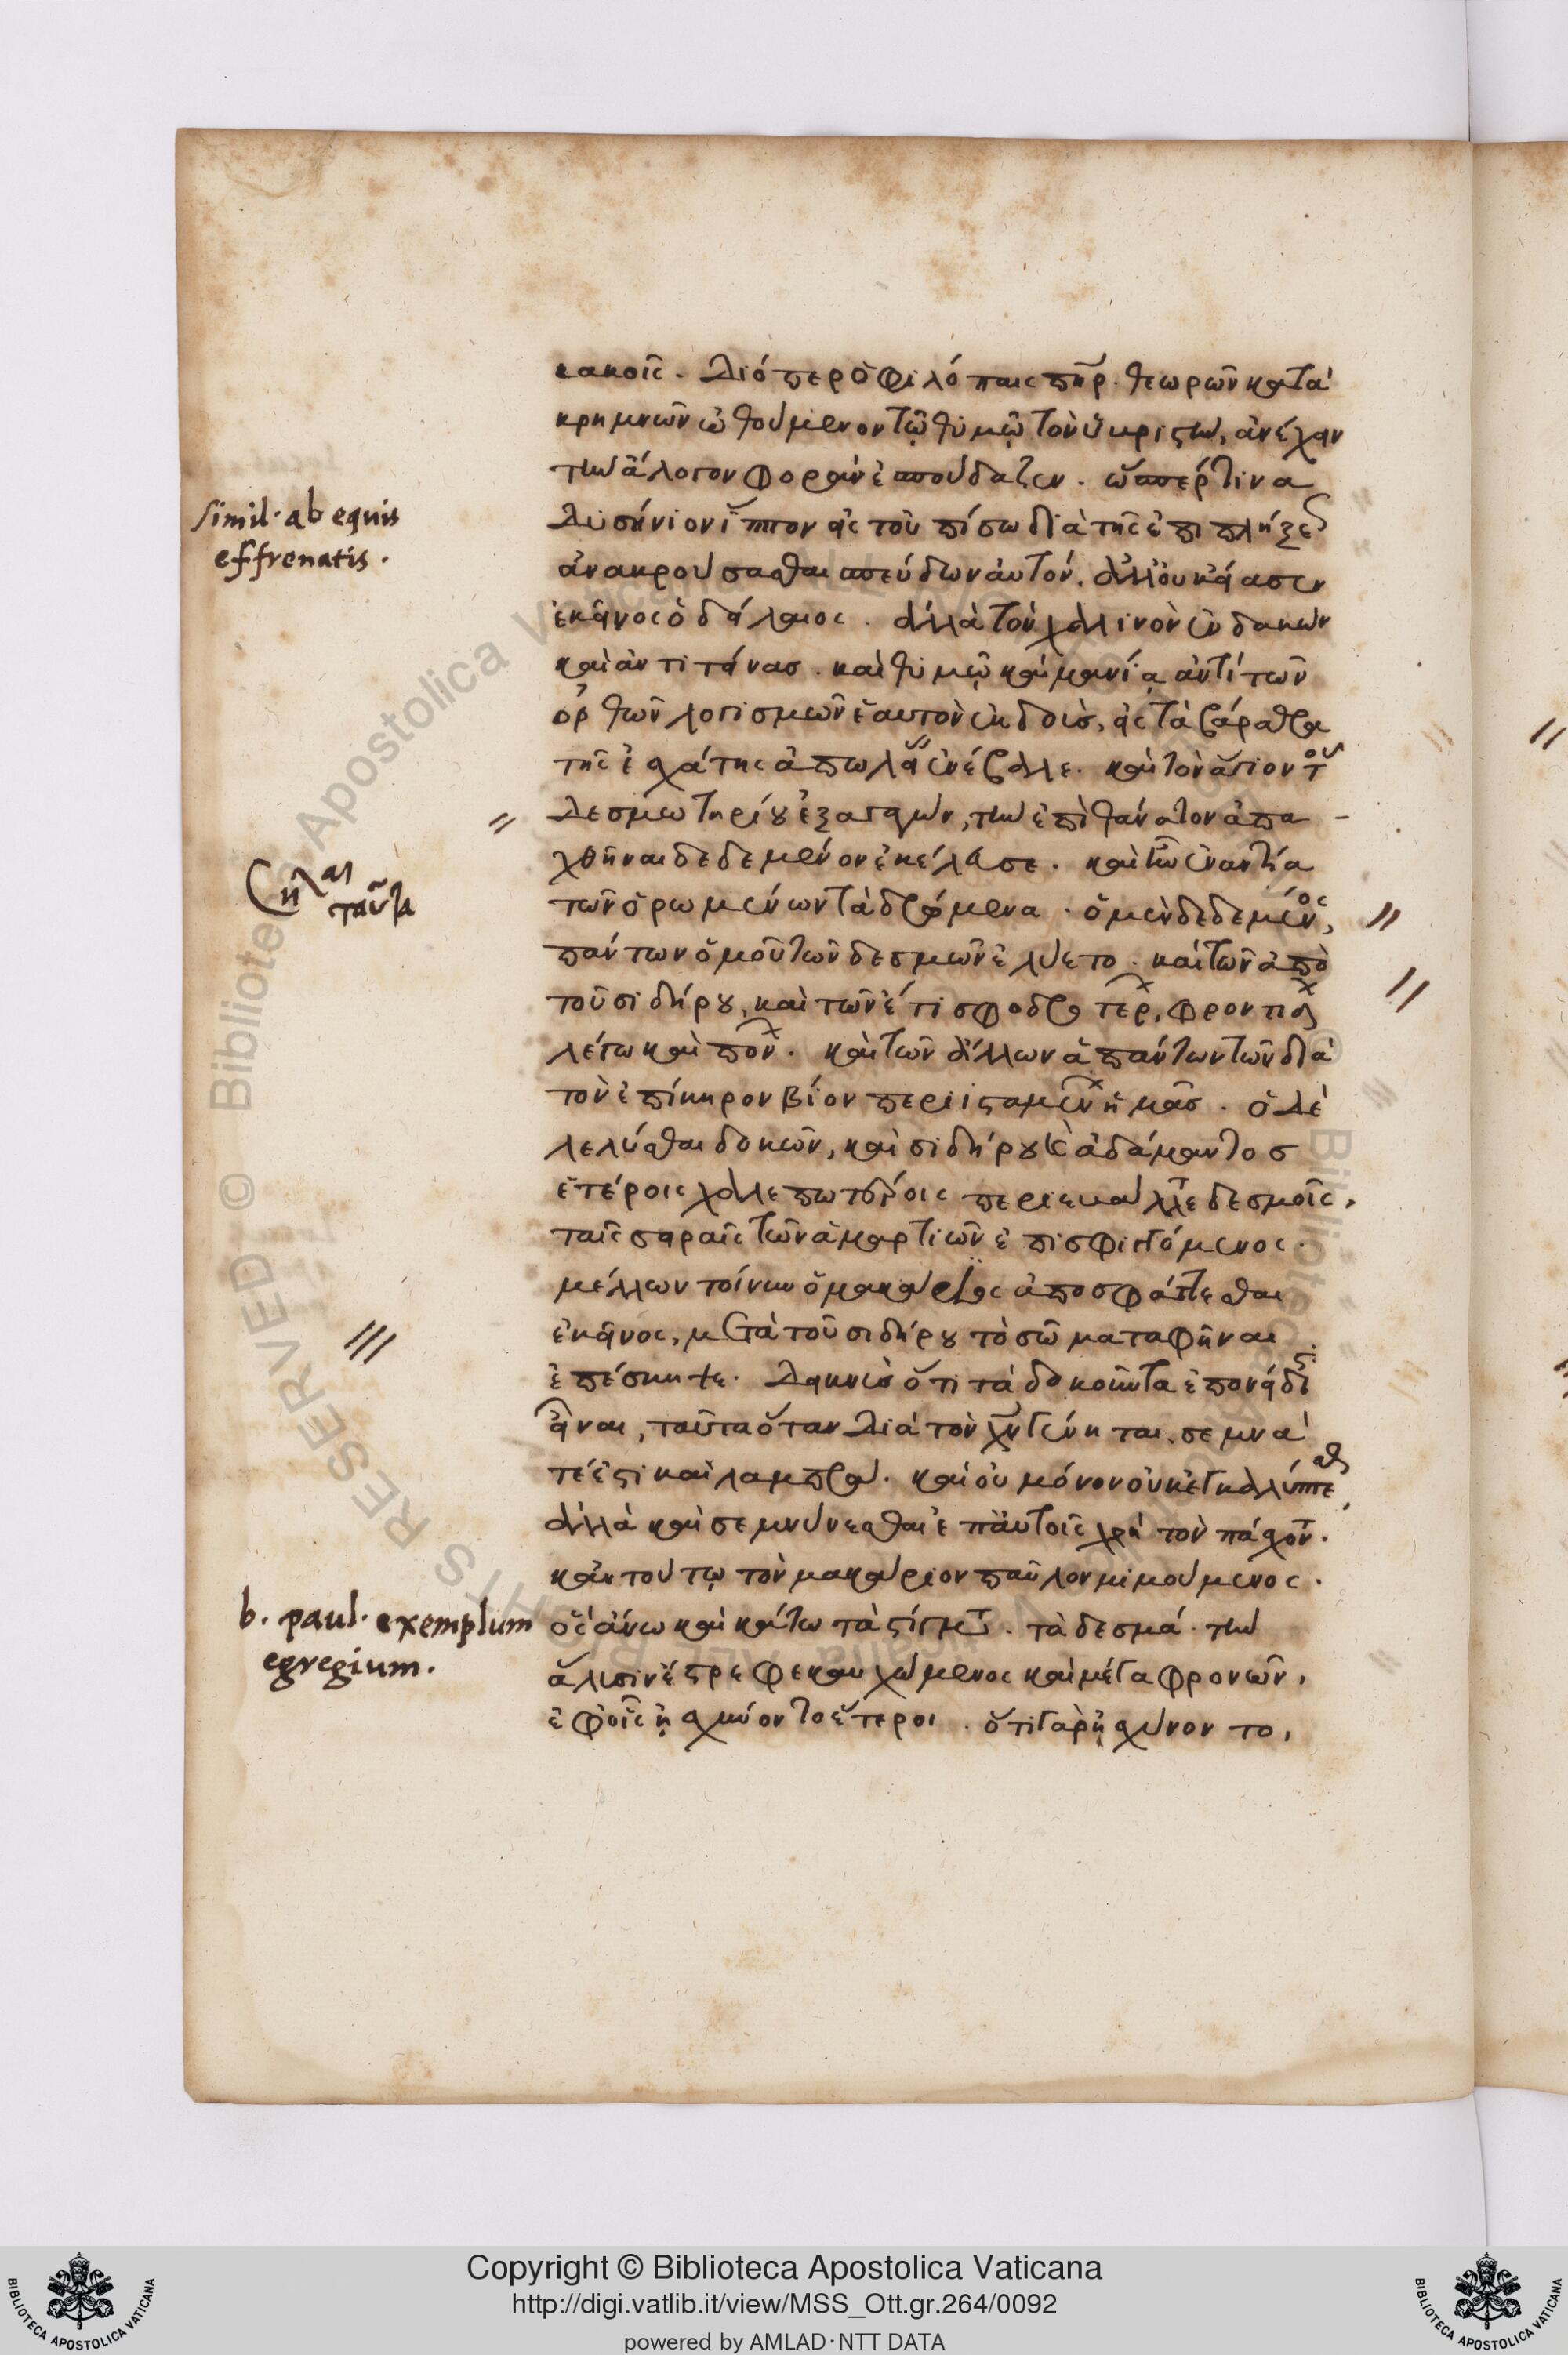 κακοῖς. Διόπερ ὁ φιλόπαις πηρ. θεωρῶν κατὰ
κρημνῶν ὠθούμενον τῷ θυμῷ τὸν ὑ κριστην, ἀνέχειν
την ἄλογον φορὰν ἐσπούδαζεν. ὥσπερ τινα
Simil. ab equis
effrenatis.
δυσήνιον ἵππον εἰς τοὐπίσω διὰ τῆς ἐπιπλήξε
ἀνακρούσασθαι σπεύδων ἀυτόν. ἀλλ' ὀυκ εἴασεν
ἐκεῖνος ὁ δείλαιος. ἀλλὰ τὸν χαλινὸν ἐνδακὼν
καὶ ἀντιτείνας. καὶ θυμῷ καὶ μανίᾳ ἀντὶ τῶν
ὀρθῶν λογισμῶν ἑαυτὸν ἐκδοὺς, εἰς τὰ βάραθρα
τῆς ἐσχάτης ἀπωλεί ἐνέβαλε. καὶ τὸν ἅγιον τ
δεσμωτηρίου ἐξαγαγὼν, την ἐπὶ θάνατον ἀπα-
χθῆναι δεδεμένον ἐκέλευσε. καὶ ἦν ἐναντία
τῶν ὁρωμένων τὰ δρώμενα. ὁ μὲν δεδεμένος,
ταῦτα
πάντων ὁμοῦ τῶν δεσμῶν ἐλύετο. καὶ τῶν ἀπὸ
τοῦ σιδήρου, καὶ τῶν ἔτι σφοδρ τερ, φροντιδ
λέγω καὶ πον. καὶ τῶν ἄλλων ἁπάντων τῶν διὰ
τὸν ἐπίκηρον βίον περιισταμεν ἡμᾶς. ὁ δὲ
λελύσθαι δοκῶν, καὶ σιδήρου κ ἀδάμαντος
ἑτέροις χαλεπωτροις περιεκαλλε δεσμοῖς,
ταῖς σειραῖς τῶν ἁμαρτιῶν ἐπισφιγγόμενος.
μέλλων τοίνυν ὁ μακάριος ἀποσφάττεσθαι
ἐκεῖνος, μετὰ τοῦ σιδήρου τὸ σῶμα ταφῆναι
ἐπέσκηψε. Δεικνὺς ὅτι τὰ δοκοῦντα ἐπονείδι
εἶναι, ταῦτα ὅταν διὰ τὸν χν γένηται, σεμνά
τέ ἐστι καὶ λαμπρά. καὶ ὀυ μόνον ὀυκ ἐγκαλύπτεσθ,
ἀλλὰ καὶ σεμνύνεσθαι ἐπ' ἀυτοῖς χρὴ τὸν πάσχοντ.
κἀν τούτῳ τὸν μακάριον παῦλον μιμούμενος.
b. paul. exemplum
egregium.
ὃς ἄνω καὶ κάτω τὰ στίγμτ. τὰ δεσμά. την
ἅλυσιν ἔστρεφε καυχώμενος καὶ μέγα φρονῶν,
ἐφ' οἷς ᾐσχύνοντο ἕτεροι. ὅτι γὰρ ᾐσχύνοντο,
Copyright © Biblioteca Apostolica Vaticana
http://digi.vatlib.it/view/MSS_Ott.gr.264/0092
powered by AMLAD·NTT DATA
BIBLIOTECA APOSTOLICA VATICANA
BIBLIOTECA APOSTOLICA VATICANA